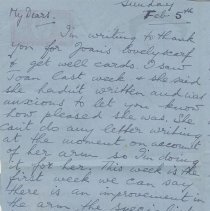 Sunday
Feb 5th
My Dears.
I'm writing to thank
you for Joan's lovely scarf
& get well cards. I saw
Joan last week & she said
she hadn't written and was
anxious to let you know
how pleased she was. She
can't do any letter writing
at the moment, on account
of her arm so I'm doing
it for her. This week is the
first week we can say
there is an improvement in
the arm, the